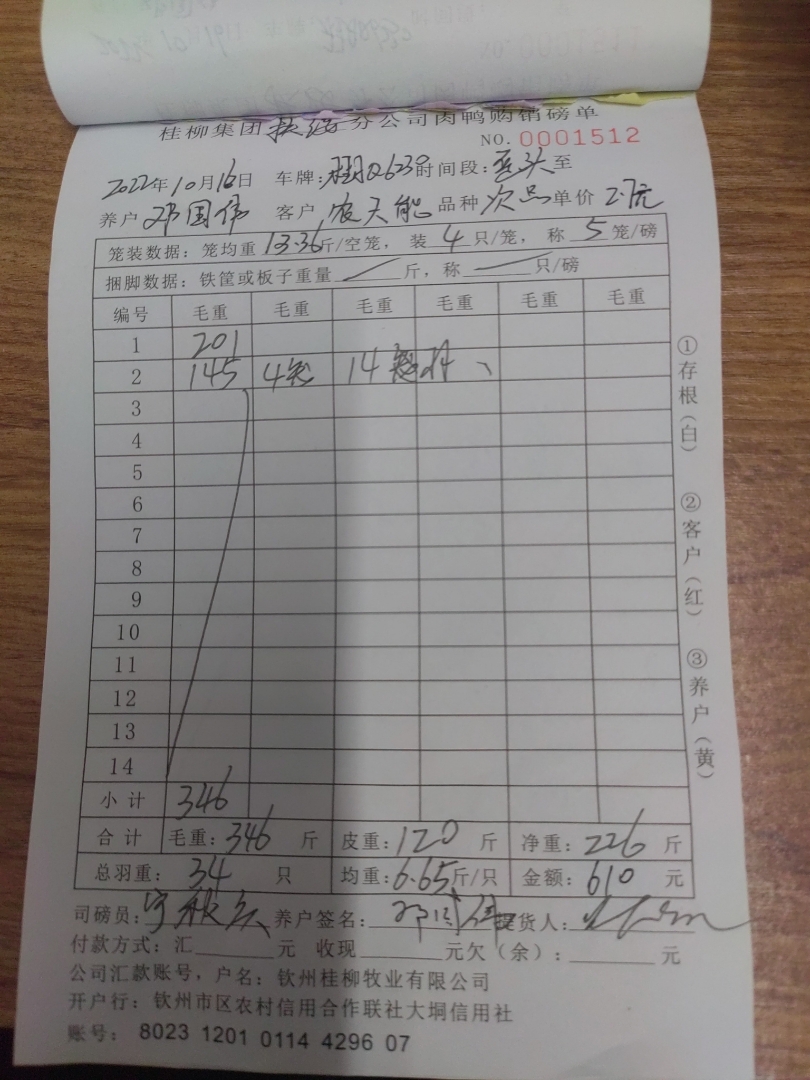 桂柳集团扶绥分公司肉鸭购销磅单
NO. 0001512
2022年10月16日 车牌: 时间段: 至
养户 邓国伟 客户 农天能 品种 次品 单价 2.7元
笼装数据: 笼均重 13.36 斤/空笼, 装 4 只/笼, 称 5 笼/磅
捆脚数据: 铁筐或板子重量 斤, 称 只/磅
编号 毛重 毛重 毛重 毛重 毛重 毛重
1 201
2 145 4笼 14
3
4
5
6
7
8
9
10
11
12
13
14
小计 346
合计 毛重: 346 斤 皮重: 120 斤 净重: 226 斤
总羽重: 34 只 均重: 6.65 斤/只 金额: 610 元
司磅员: 养户签名: 邓国伟 提货人:
付款方式: 汇 元 收现 元欠(余): 元
公司汇款账号, 户名: 钦州桂柳牧业有限公司
开户行: 钦州市区农村信用合作联社大垌信用社
账号: 8023 1201 0114 4296 07
①存根(白) ②客户(红) ③养户(黄)